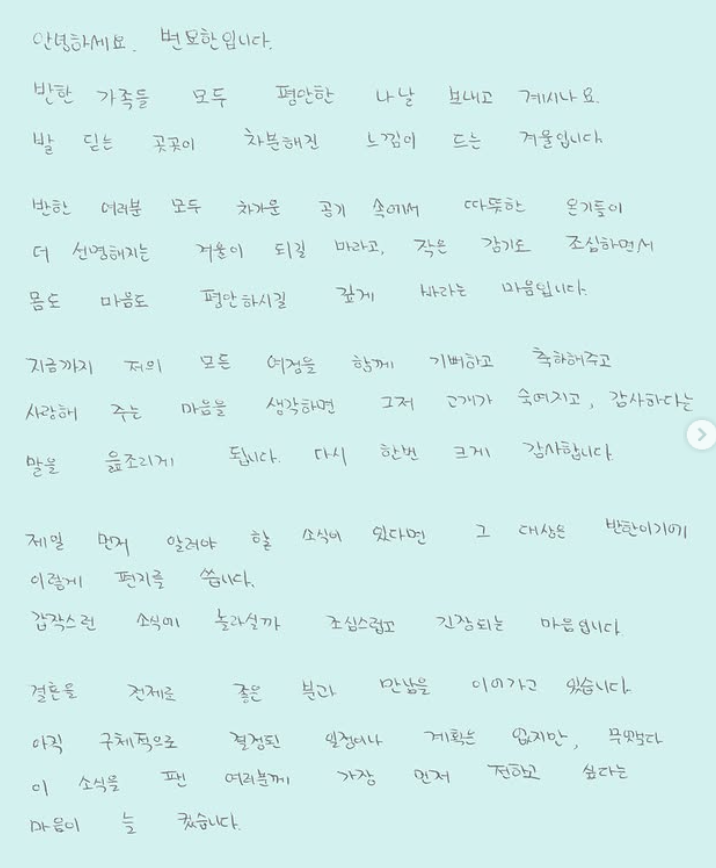 안녕하세요. 변요한입니다.
반한 가족들 모두 평안한 나날 보내고 계시나요.
발 딛는 곳곳이 차분해진 느낌이 드는 겨울입니다
반한 여러분 모두 차가운 공기 속에서 따뜻한 온기들이
더 선명해지는 겨울이 되길 바라고, 작은 감기도 조심하면서
몸도 마음도 평안하시길 깊게 바라는 마음입니다.
지금까지 저의 모든 여정을 함께 기뻐하고 축하해주고
사랑해 주는 마음을 생각하면 그저 고개가 숙여지고, 감사하다는
말을 읊조리게 됩니다. 다시 한번 크게 감사합니다.
제일 먼저 알려야 할 소식이 있다면 그 대상은 반한이기에
이렇게 편지를 씁니다.
갑작스런 소식에 놀라실까 조심스럽고 긴장되는 마음입니다
결혼을 전제로 좋은 분과 만남을 이어가고 있습니다.
아직 구체적으로 결정된 일정이나 계획은 없지만, 무엇보다
이 소식을 팬 여러분께 가장 먼저 전하고 싶다는
마음이 늘 컸습니다.